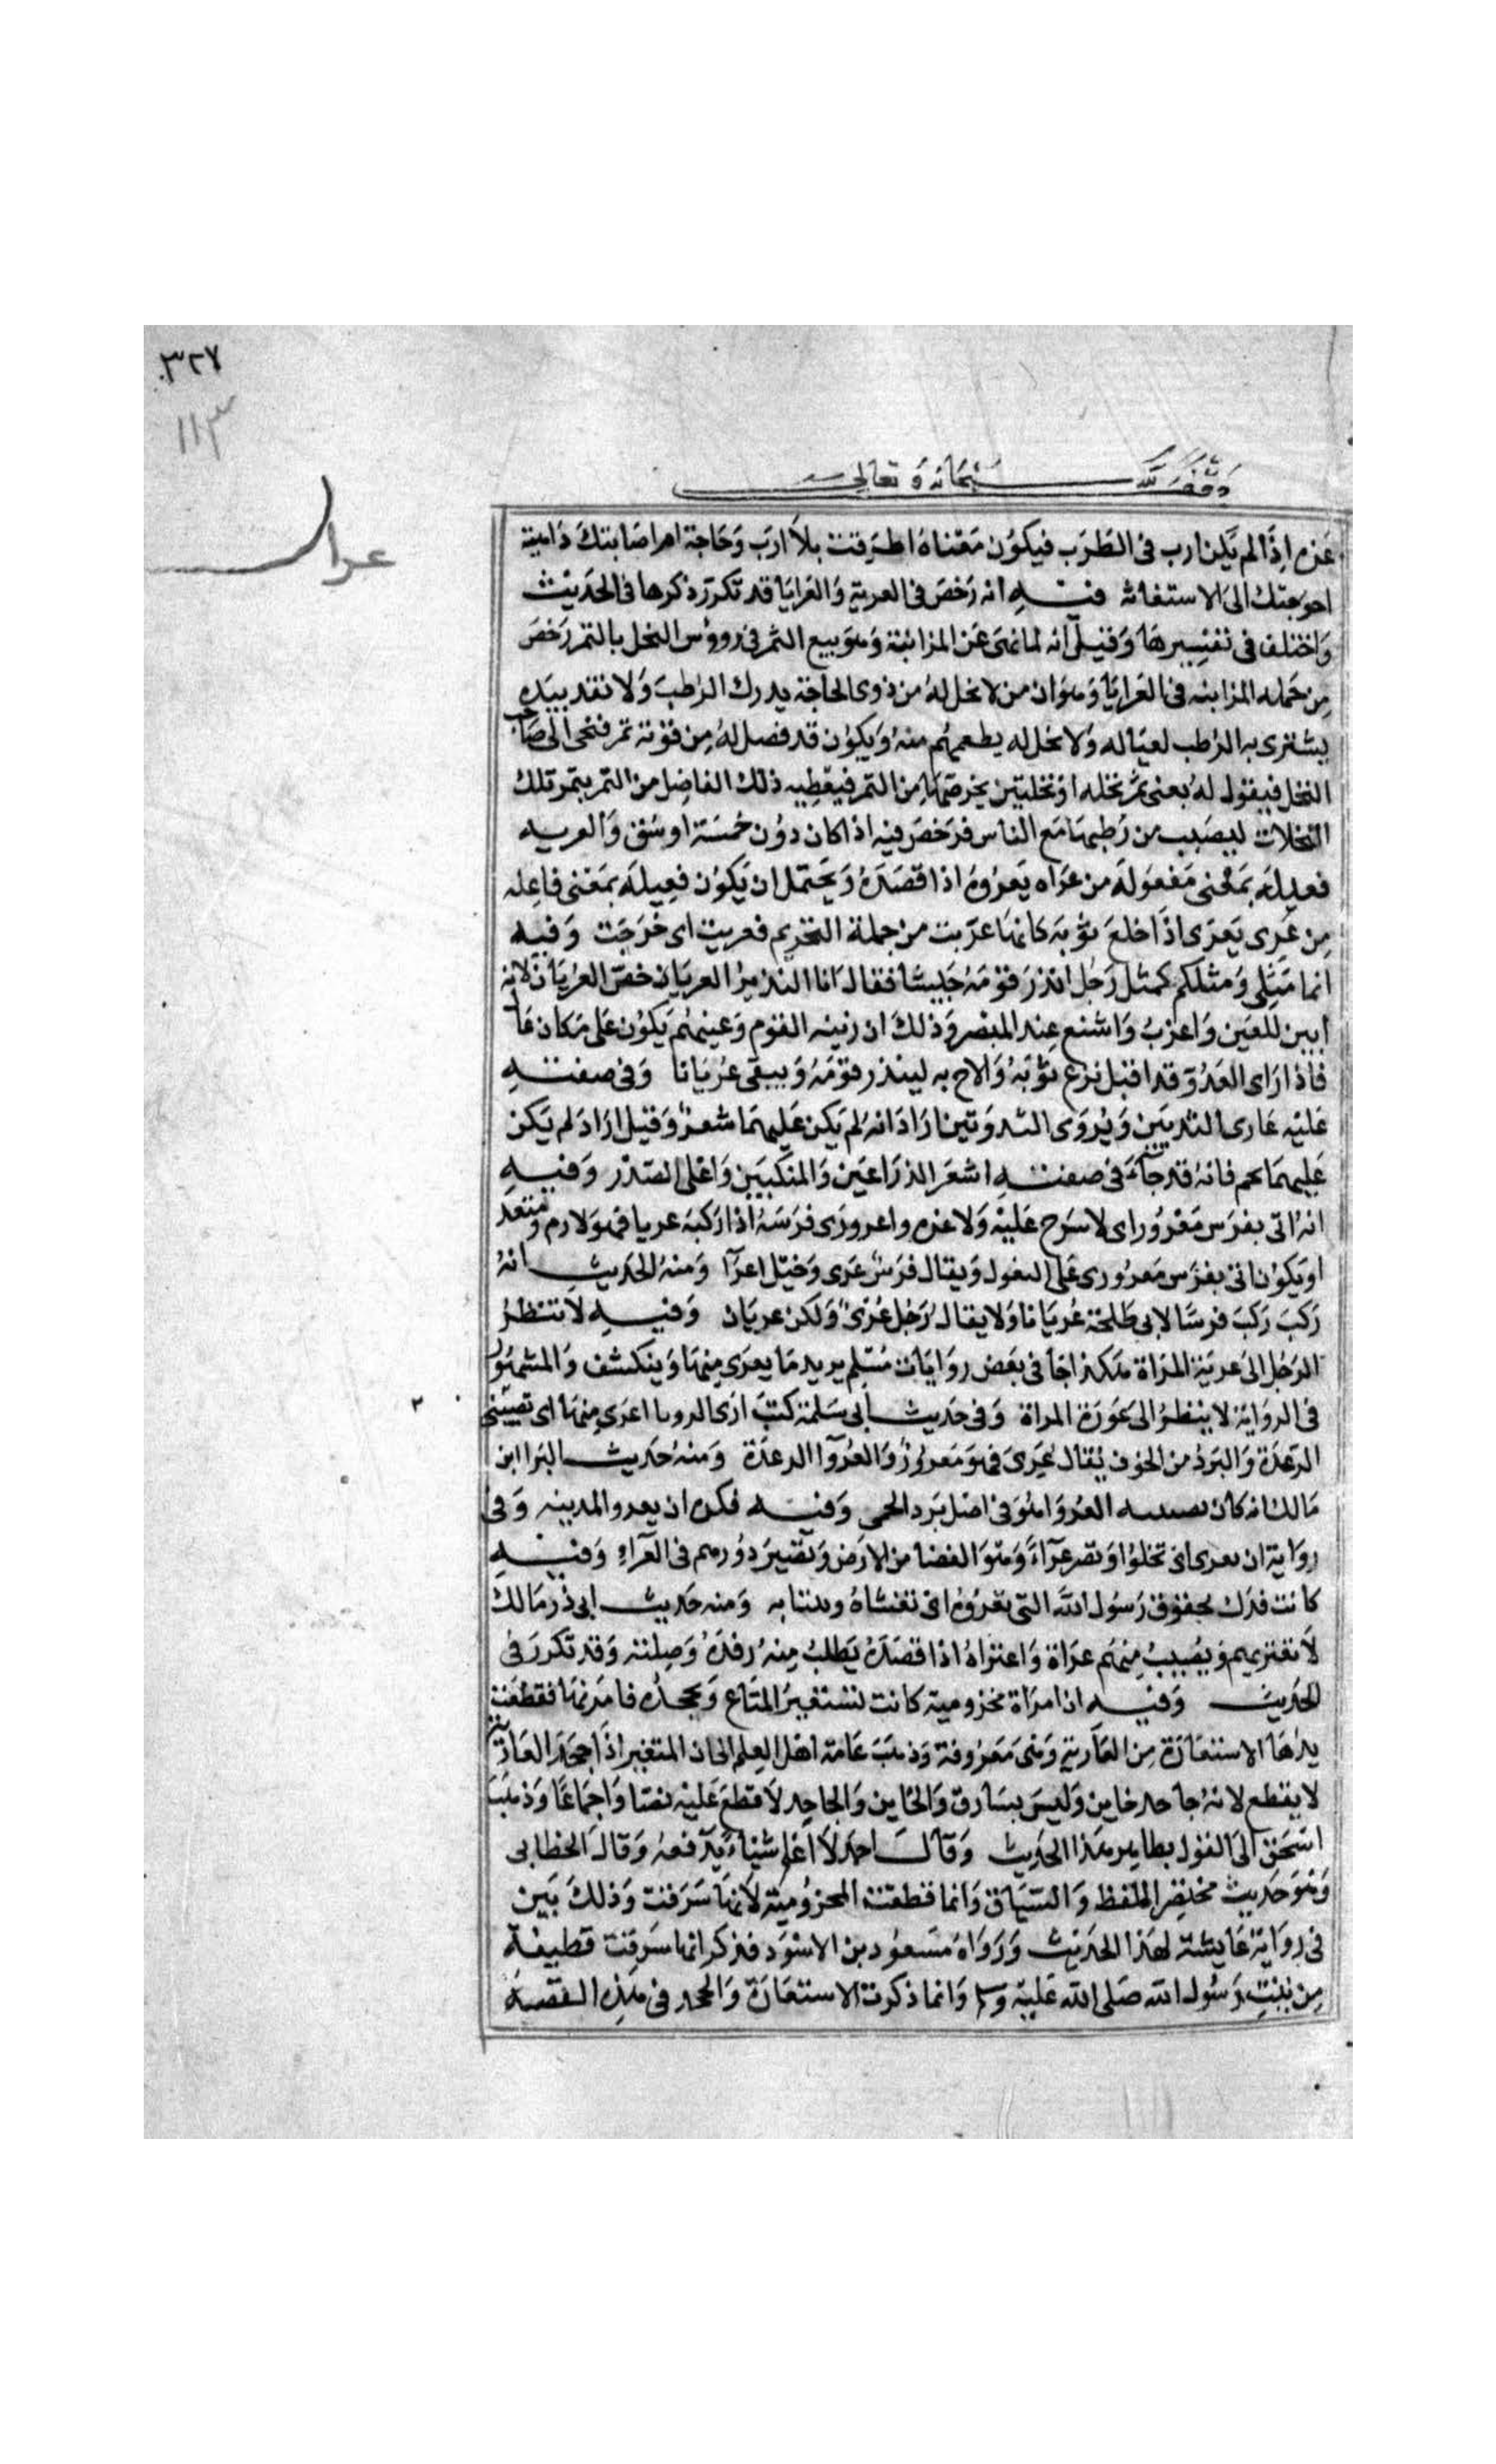 ٣٢٧
١١٣
وقف لله سبحانه وتعالى
عرا
غيره اذا لم يكن ارب فى الطرب فيكون معناه اطرقت بلا ارب وحاجة ام اصابتك داهية
احوجتك الى الاستغاثه فيه انه رخص فى العرية والعرايا قد تكرر ذكرها فى الحديث
واختلف فى تفسيرها وقيل انه لما نهى عن المزابنة وهو بيع الثمر فى رووس النخل بالتمر رخص
من جمله المزابنه فى العرايا وهو ان من لا نخل له من ذوى الحاجة يدرك الرطب ولا نقد بيده
يشترى به الرطب لعياله ولا نخل له يطعمهم منه ويكون قد فضل له من قوته تمر فيجى الى صاحب
النخل فيقول له بعنى ثمر نخله او نخلتين بخرصها من التمر فيعطيه ذلك الفاضل من التمر بتمر تلك
النخلات ليصيب من رطبها مع الناس فرخص فيه اذا كان دون خمسة اوسق والعريه
فعيله بمعنى مفعوله من عراه يعروه اذا قصده ويحتمل ان يكون فعيله بمعنى فاعله
من عرى يعرى اذا خلع ثوبه كانها عريت من جملة التحريم فعريت اى خرجت وفيه
انما مثلى ومثلكم كمثل رجل انذر قومه جيشا فقال انا النذير العريان خص العريان لانه
ابين للعين واغرب واشنع عند المبصر وذلك ان ربيئه القوم وعينهم يكون على مكان عال
فاذا راى العدو قد اقبل نزع ثوبه والاح به لينذر قومه ويبقى عريانا وفى صفته
عليه عارى الثديين ويروى الثندوتين اراد انه لم يكن عليهما شعر وقيل اراد لم يكن
عليهما لحم فانه قد جاء فى صفته اشعر الذراعين والمنكبين واعلى الصدر وفيه
انه اتى بفرس معرور اى لا سرج عليه ولا غيره واعرورى فرسه اذا ركبه عريا فهو لازم ومتعد
او يكون اتى بفرس معرورى على المفعول ويقال فرس عرى وخيل اعرآ ومنه الحديث انه
ركب ركب فرسا لابى طلحة عريانا ولا يقال رجل عرى ولكن عريان وفيه لا تنظر
الرجل الى عرية المراة هكذا جا فى بعض روايات مسلم يريد ما يعرى منها وينكشف والمشهور
فى الرواية لا ينظر الى عورة المراة وفى حديث ابى سلمة كنت ارى الرويا اعرى منها اى تصيبنى
الرعدة والبرد من الخوف يقال عرى فهو معرور والعروآ الرعدة ومنه حديث البرا ابن
مالك انه كان يصيبه العروا وهو فى اصل برد الحمى وفيه فكره ان يعروا المدينه وفى
رواية ان يعرى اى تخلوا وتصير عرآء وهو الفضا من الارض وتصير دورهم فى العرآء وفيه
كانت فدك لحقوق رسول الله التى تعروه اى تغشاه وتنتابه ومنه حديث ابى ذر مالك
لا تعتريهم وتصيب منهم عراه واعتراه اذا قصده يطلب منه رفده وصلته وقد تكرر فى
الحديث وفيه ان امراة مخزومية كانت تستعير المتاع وتجحده فامر بها فقطعت
يدها الاستعارة من العارية وهى معروفة وذهب عامة اهل العلم الى ان المستعير اذا جحد العارية
لا يقطع لانه جاحد خاين وليس بسارق والخاين والجاحد لا قطع عليه نصا واجماعا وذهب
اسحق الى القول بظاهر هذا الحديث وقال احمد لا اعلم شيئا يدفعه وقال الخطابى
وهو حديث مختصر اللفظ والسياق وانما قطعت المخزومية لانها سرقت وذلك بين
فى رواية عايشة لهذا الحديث ورواه مسعود بن الاسود فذكر انها سرقت قطيفة
من بيت رسول الله صلى الله عليه وسلم وانما ذكرت الاستعارة والجحد فى هذه القصة